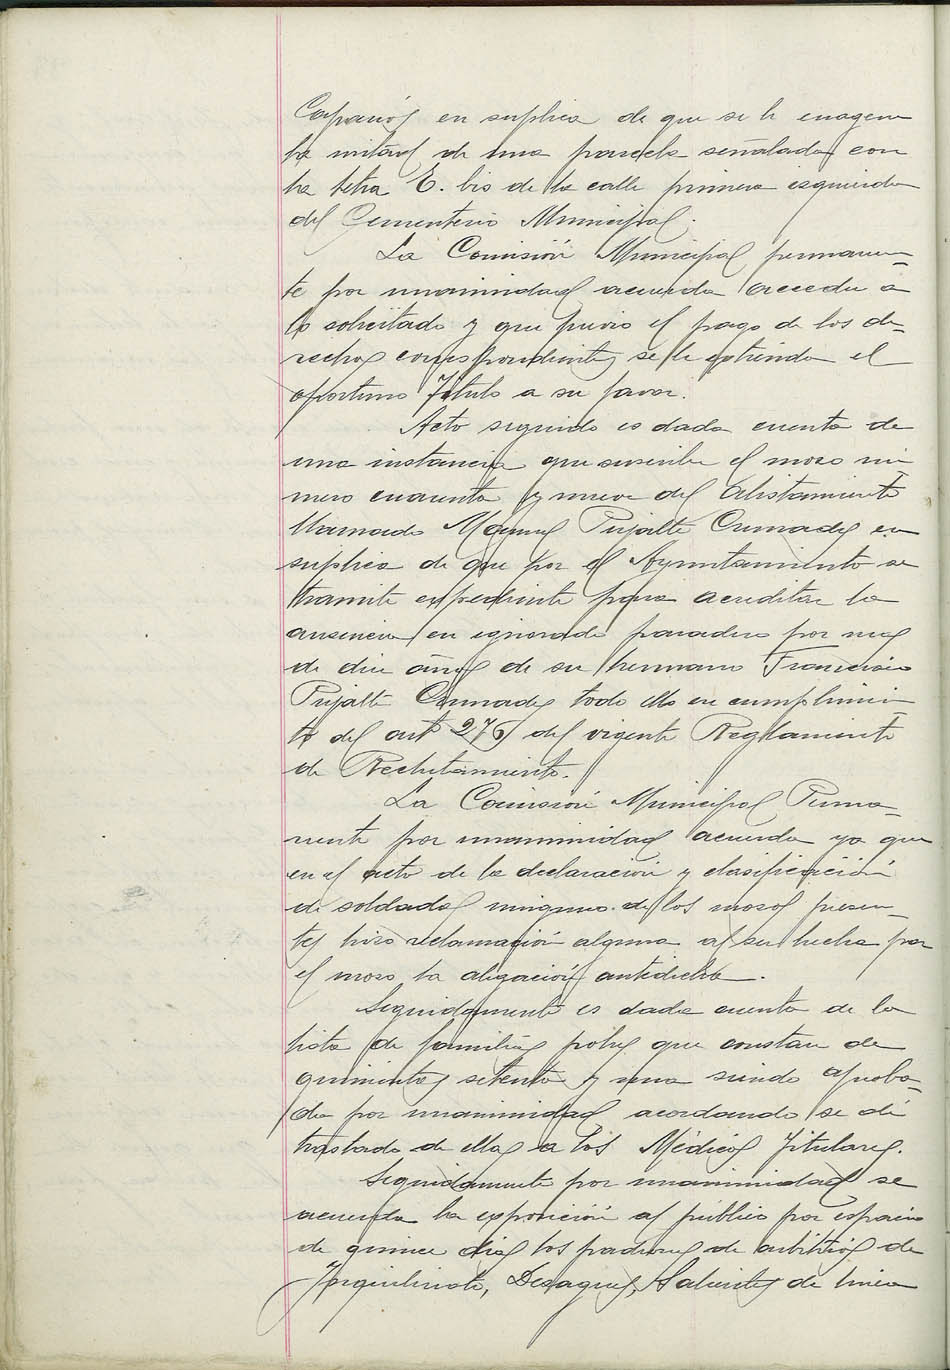 Caparrós en suplica de que se le enagene
la mitad de una parcela señalada con
la letra E. bis de la calle primera izquierda
del Cementerio Municipal.
La Comisión Municipal permanen-
te por unanimidad acuerda acceder a
lo solicitado y que previo el pago de los de-
rechos correspondientes se le extienda el
oportuno Titulo a su favor.
Acto seguido es dada cuenta de
una instancia que suscribe el mozo nú-
mero cuarenta y nueve del Alistamiento
llamado Manuel Pujalte Cremades en
suplica de que por el Ayuntamiento se
tramite expediente para acreditar la
ausencia en ignorado paradero por mas
de diez años de su hermano Francisco
Pujalte Cremades todo ello en cumplimien-
to del art 276 del vigente Reglamento
de Reclutamiento.
La Comisión Municipal Perma-
nente por unanimidad acuerda ya que
en el acto de la declaración y clasificación
de soldados ninguno de los mozos presen-
tes hizo reclamación alguna al ser hecha por
el mozo la alegación antedicha.
Seguidamente es dada cuenta de la
lista de familias pobres que constan de
quinientas setenta y una siendo aproba-
da por unanimidad acordando se dé
traslado de ellas a los Médicos Titulares.
Seguidamente por unanimidad se
acuerda la exposición al público por espacio
de quince dias los padrones de arbitrios de
Inquilinato, Desagues, Salientes de linea